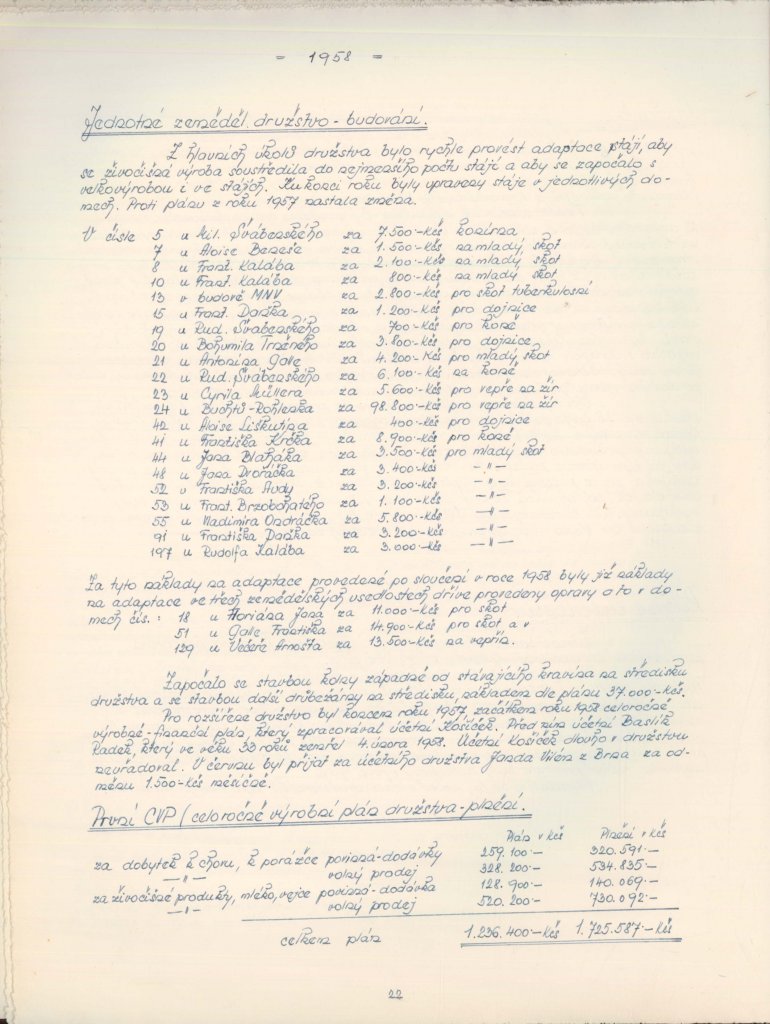 = 1958 =
Jednotné zeměděl. družstvo - budování.
Z hlavních úkolů družstva bylo rychle provést adaptace stájí, aby
se živočišná výroba soustředila do nejmenšího počtu stájí a aby se započalo s
velkovýrobou i ve stájích. Ku konci roku byly upraveny stáje v jednotlivých do-
mech. Proti plánu z roku 1957 nastala změna.
V čísle 5 u Mil. Švábenského za 7.500.-Kčs konírna
7 u Aloise Beneše za 1.500.-Kčs na mladý skot
8 u Frant. Kalába za 2.100.-Kčs na mladý skot
10 u Frant. Kalába za 800.-Kčs na mladý skot
13 v budově MNV za 2.800.-Kčs pro skot tuberkulosní
15 u Frant. Daňka za 1.200.-Kčs pro dojnice
19 u Rud. Švábenského za 700.-Kčs pro koně
20 u Bohumila Trněného za 3.800.-Kčs pro dojnice
21 u Antonína Gale za 4.200.-Kčs pro mladý skot
22 u Rud. Švábenského za 6.100.-Kčs na koně
23 u Cyrila Müllera za 5.600.-Kčs pro vepře na žír
24 u Buchtů-Rohlenka za 98.800.-Kčs pro vepře na žír
42 u Aloise Liškutina za 400.-Kčs pro dojnice
41 u Františka Krčka za 8.900.-Kčs pro koně
44 u Jana Blaháka za 3.500.-Kčs pro mladý skot
48 u Jana Dvořáčka za 3.400.-Kčs -"-
52 u Františka Audy za 3.200.-Kčs -"-
53 u Frant. Brzobohatého za 1.100.-Kčs -"-
55 u Vladimíra Ondráčka za 5.800.-Kčs -"-
91 u Františka Daňka za 3.200.-Kčs -"-
197 u Rudolfa Kalába za 3.000.-Kčs -"-
Za tyto náklady na adaptace provedené po sloučení v roce 1958 byly již náklady
na adaptace ve třech zemědělských usedlostech dříve provedeny opravy a to v do-
mech čís.: 18 u Floriána Jana za 11.000.-Kčs pro skot
51 u Gale Františka za 14.900.-Kčs pro skot a v
129 u Večeře Arnošta za 13.500.-Kčs na vepřín.
Započalo se stavbou kolny západně od stávajícího kravína na středisku
družstva a se stavbou další drůbežárny na středisku, nákladem dle plánu 37.000.-Kčs.
Pro rozšířené družstvo byl koncem roku 1957, začátkem roku 1958 celoročně
výrobně-finanční plán, který zpracovával účetní Košíček. Před ním účetní Baslík
Radek, který ve věku 38 roků zemřel 4. února 1958. Účetní Košíček dlouho v družstvu
neúřadoval. V červnu byl přijat za účetního družstva Janda Vilém z Brna za od-
měnu 1.500.-Kčs měsíčně.
První CVP (celoročně výrobní plán družstva-plnění.
Plán v Kčs Plnění v Kčs
za dobytek k chovu, k porážce povinná-dodávky 259.100.- 320.591.-
-"- volný prodej 328.200.- 534.835.-
za živočišné produkty, mléko, vejce povinná-dodávka 128.900.- 140.069.-
-"- volný prodej 520.200.- 730.092.-
celkem plán 1.236.400.-Kčs 1.725.587.-Kčs
22